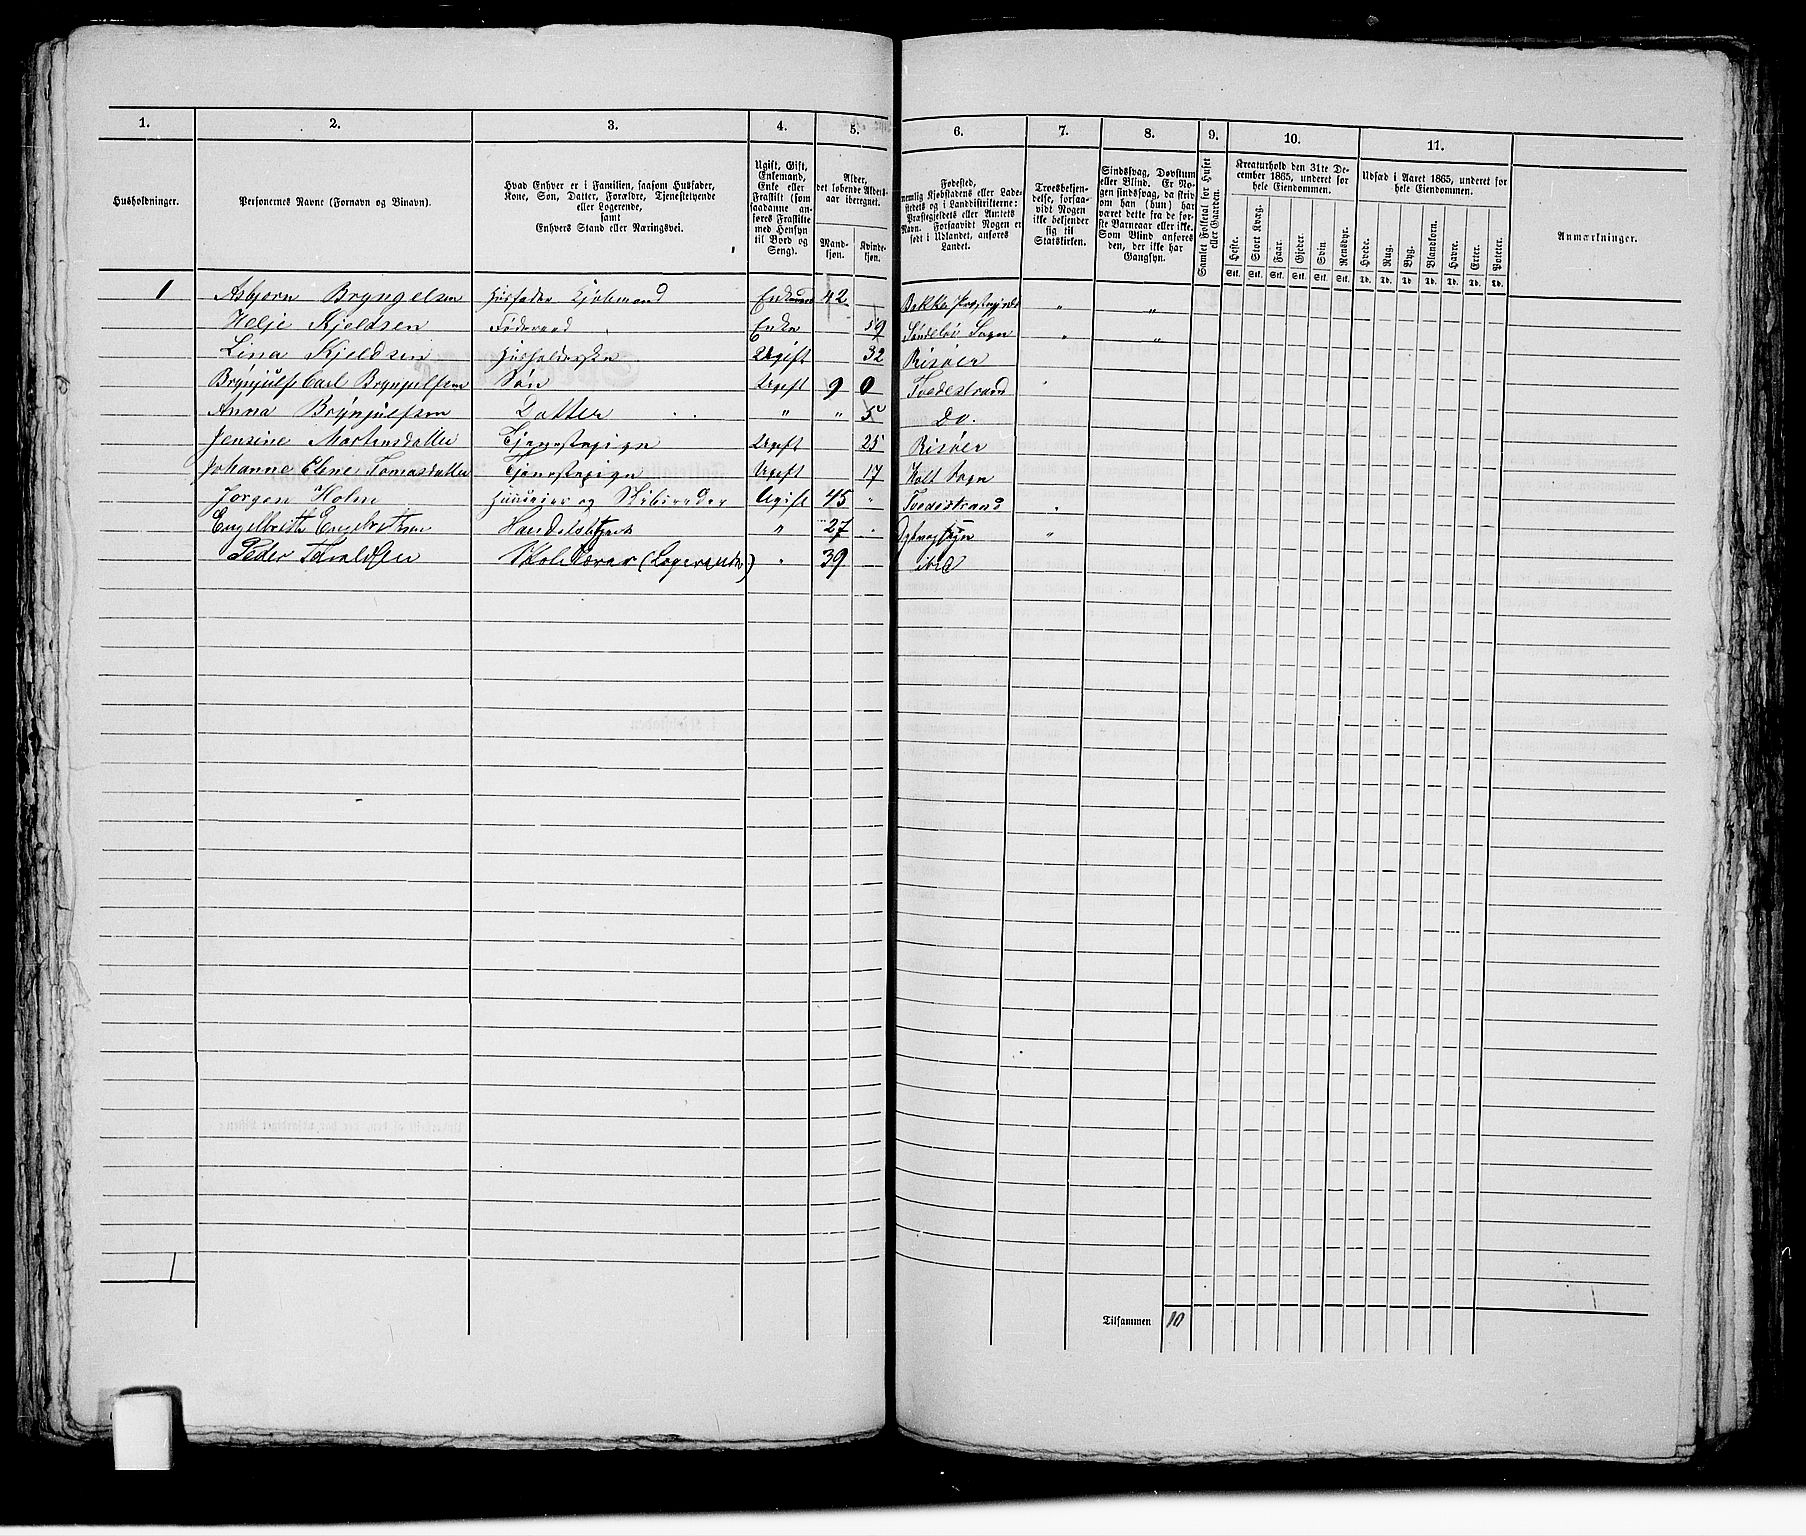 1. 2. 3. 4. 5. 6. 7. 8. 9. 10. 11.
Husholdninger.
Personernes Navne (Fornavn og Tilnavn).
Hvad Enhver er i Familien, saasom Husfader, Kone, Søn, Datter, Forældre, Tjenestetyende eller Logerende, samt Enhvers Stand eller Næringsvei.
Ugift, Gift, Enkemand, Enke eller Fraskilt (som saadanne anføres Fraskilte med Hensyn til Bord og Seng).
Alder, det løbende Aldersaar iberegnet.
Mandkjøn. Kvindekjøn.
Fødested, nemlig Kjøbstadens eller Ladestedets og i Landdistrikterne: Præstegjeldets eller Amtets Navn. Forsaavidt Nogen er født i Udlandet, anføres Landet.
Troesbekjendelse, forsaavidt Nogen ikke bekjender sig til Statskirken.
Sindssvag, Døvstum eller Blind. Er Nogen sindssvag, da skrives om han (hun) har været dette fra de første Barneaar eller ikke. Som Blind anføres den, der ikke har Gangsyn.
Samlet Folketal for Huset eller Gaarden.
Kreaturhold den 31te December 1865, underet for hele Eiendommen.
Heste. Stort Kvæg. Faar. Gjeder. Svin. Rensdyr.
Stk. Stk. Stk. Stk. Stk. Stk.
Udsæd i Aaret 1865, underet for hele Eiendommen.
Hvede. Rug. Byg. Blandkorn. Havre. Erter. Poteter.
Td. Td. Td. Td. Td. Td. Td.
Anmærkninger.
1 Asbjørn Bryngelsen Husfader Kjøbmand Enkemand 42 Bakke Præstegjeld " "
Helje Kjeldsen Føderaad Enke 59 Søndeløv Sogn " "
Lina Kjeldsen Husholderske Ugift 32 Risøer
Brynjulf Carl Bryngelfsen Søn Ugift 9 0 Tvedestrand
Anna Brynjulfsen Datter " " 5 Do.
Jensine Martinsdatter Tjenestepige Ugift 25 Risøer
Johanne Elene Tomasdatter Tjenestepige Ugift 17 Holt Sogn
Jørgen Holm Huuseier og Skibsreder Ugift 45 " Tvedestrand
Engelbreth Engebretsen Handelsbetjent " 27
Peder Skolelærer (Logerende) " 39 ibid
1
Tilsammen 10